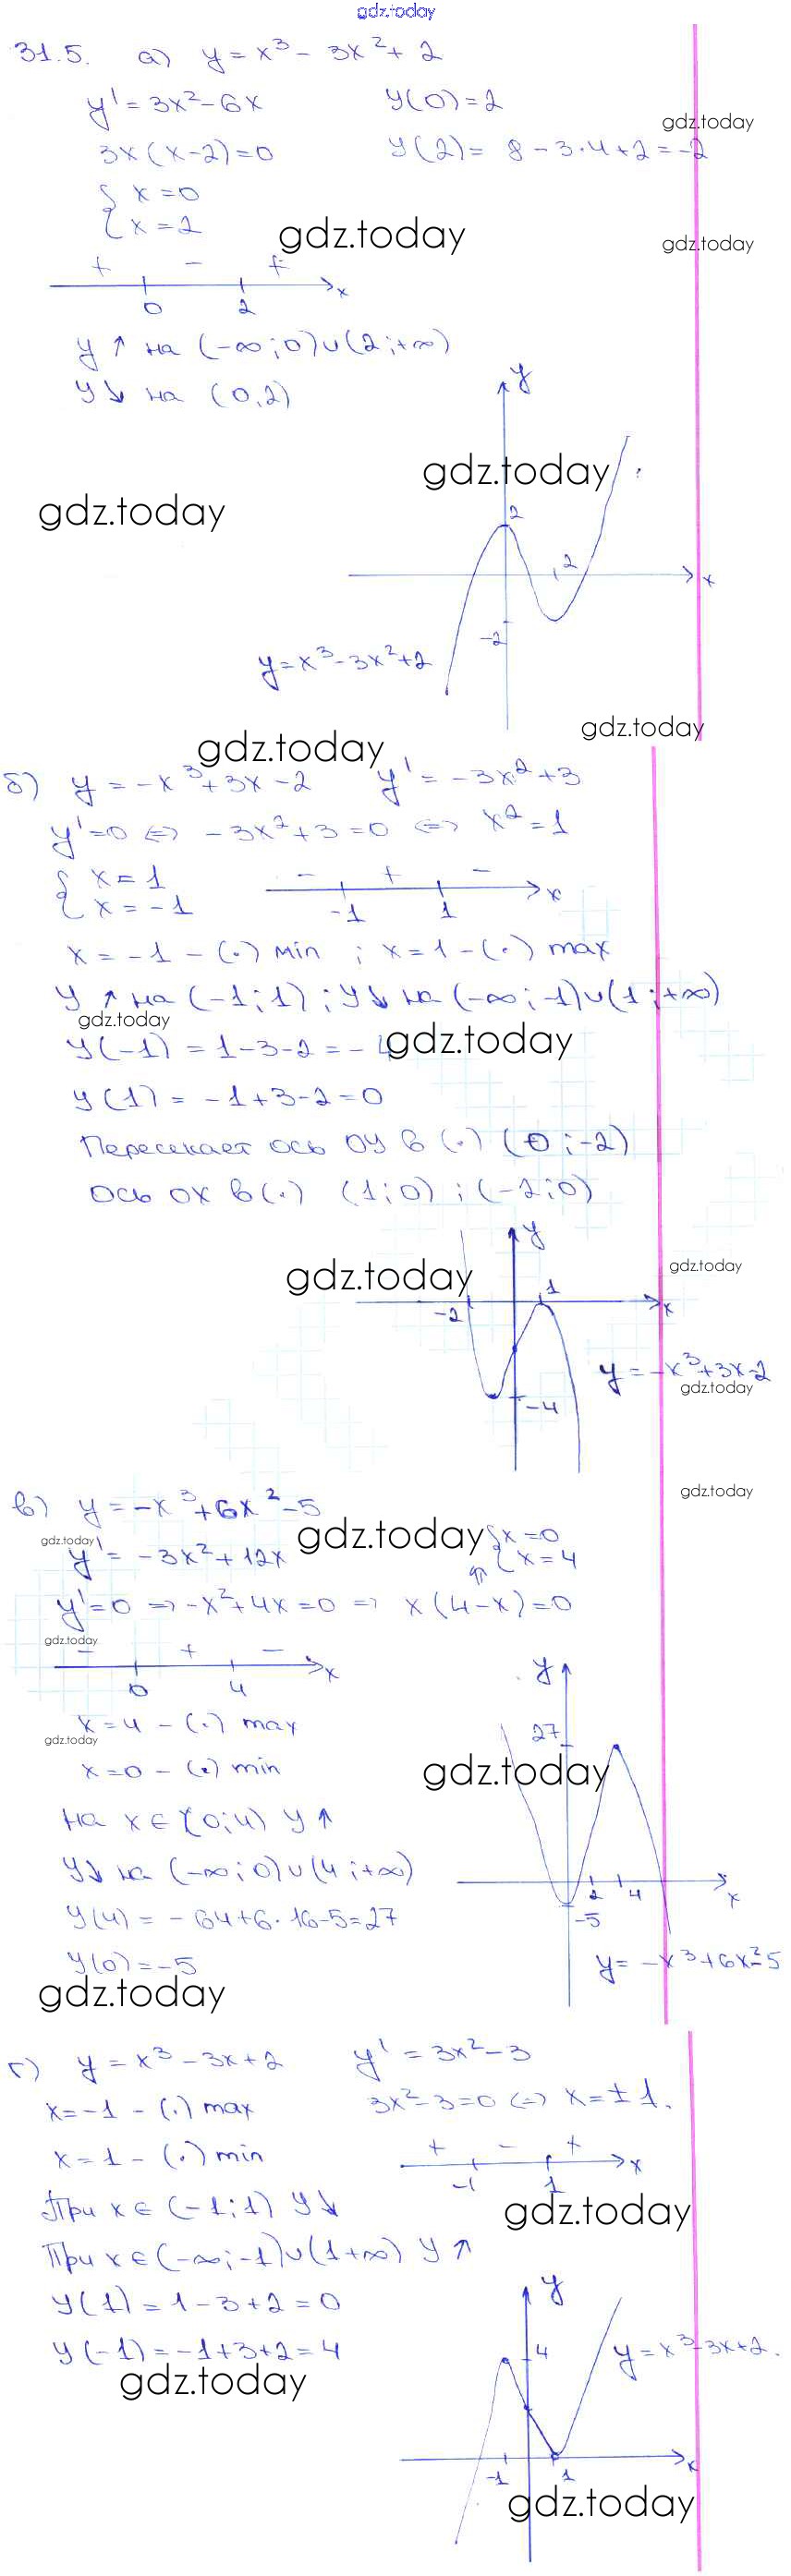 gdz.today
31.5. а) y = x³ - 3x² + 2
y' = 3x² - 6x y(0) = 2
gdz.today
3x(x-2) = 0 y(2) = 8 - 3·4 + 2 = -2
{ x = 0
{ x = 2
gdz.today
gdz.today
+ - +
0 2 x
y ↑ на (-∞; 0)∪(2; +∞)
y ↓ на (0, 2)
y
gdz.today
gdz.today
2
2
x
-2
y = x³ - 3x² + 2
gdz.today
gdz.today
б) y = -x³ + 3x - 2 y' = -3x² + 3
y' = 0 ⇔ -3x² + 3 = 0 ⇔ x² = 1
{ x = 1
{ x = -1
- + -
-1 1 x
x = -1 - (·) min ; x = 1 - (·) max
y ↑ на (-1; 1) ; y ↓ на (-∞; -1)∪(1; +∞)
gdz.today
y(-1) = 1 - 3 - 2 = -4
gdz.today
y(1) = -1 + 3 - 2 = 0
Пересекает ось OY в (·) (0; -2)
Ось OX в (·) (1; 0) ; (-2; 0)
y
gdz.today
gdz.today
-2 1 x
y = -x³ + 3x - 2
gdz.today
-4
gdz.today
в) y = -x³ + 6x² - 5
gdz.today
gdz.today
{ x = 0
{ x = 4
y' = -3x² + 12x ⇑
y' = 0 ⇒ -x² + 4x = 0 ⇒ x(4-x) = 0
gdz.today
- + -
0 4 x
y
x = 4 - (·) max
gdz.today
27
x = 0 - (·) min
gdz.today
на x ∈ (0; 4) y ↑
y ↓ на (-∞; 0)∪(4; +∞)
2 4 x
y(4) = -64 + 6·16 - 5 = 27
-5
y(0) = -5
y = -x³ + 6x² - 5
gdz.today
г) y = x³ - 3x + 2 y' = 3x² - 3
x = -1 - (·) max 3x² - 3 = 0 ⇔ x = ±1.
x = 1 - (·) min
+ - +
-1 1 x
При x ∈ (-1; 1) y ↓
gdz.today
При x ∈ (-∞; -1)∪(1 +∞) y ↑
y(1) = 1 - 3 + 2 = 0
y
y(-1) = -1 + 3 + 2 = 4
4
y = x³ - 3x + 2.
gdz.today
-1 1 x
gdz.today